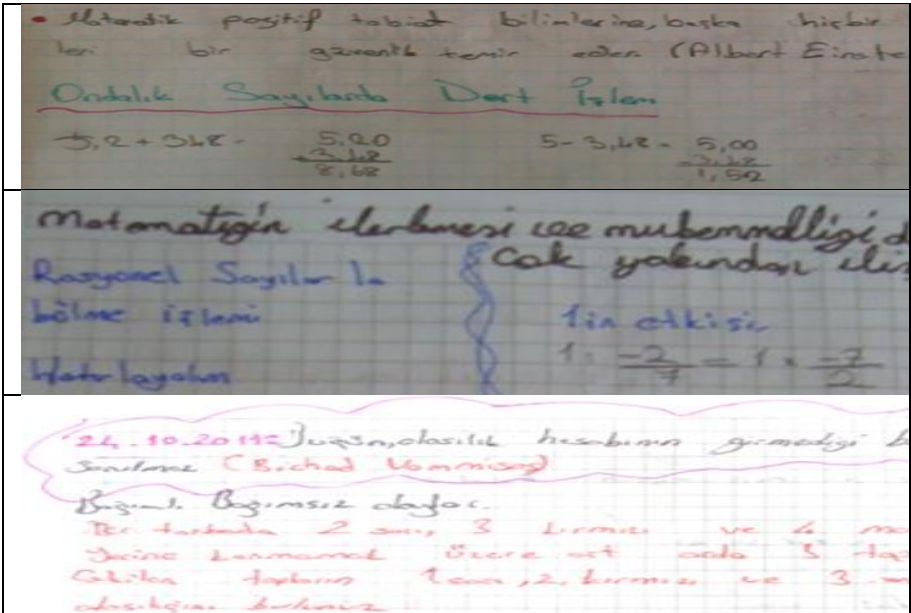 • Matematik pozitif tabiat bilimlerine, başka hiçbir
leri bir güvenlik temin eder. (Albert Einste
Ondalık Sayılarda Dört İşlem
5,2 + 3,48 = 5,20 5 - 3,48 = 5,00
+3,48 -3,48
8,68 1,52
Matematiğin ilerlemesi ve mükemmelliği d
çok yakından iliş
Rasyonel Sayılar la
bölme işlemi 1 in etkisi
1 : -2/7 = 1 . -7/2
Hatırlayalım
24.10.2011 = Bugün, olasılık hesabının girmediği b
sanılmaz
Bağımlı Bağımsız olaylar.
Bir torbada 2 sarı, 3 kırmızı ve 4 ma
Yerine konmamak üzere art arda 3 top
Çekilen topların 1. sarı, 2. kırmızı ve 3. m
olasılığını bulunuz